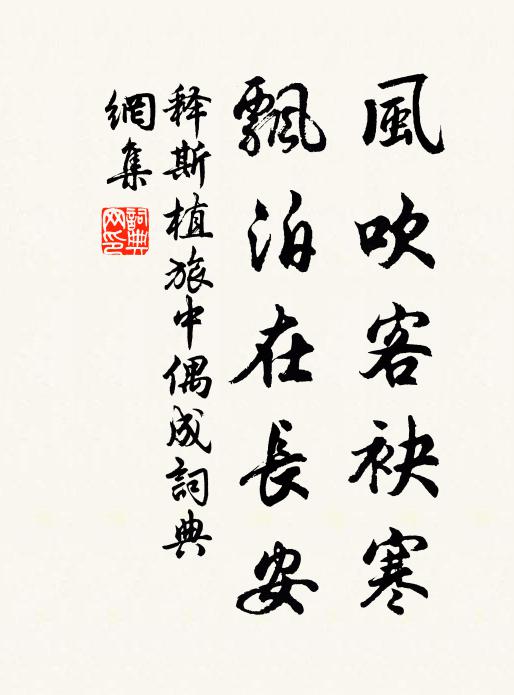 風吹客袂寒
飄泊在長安
释斯植旅中偶成詞典
網集
詞典网印